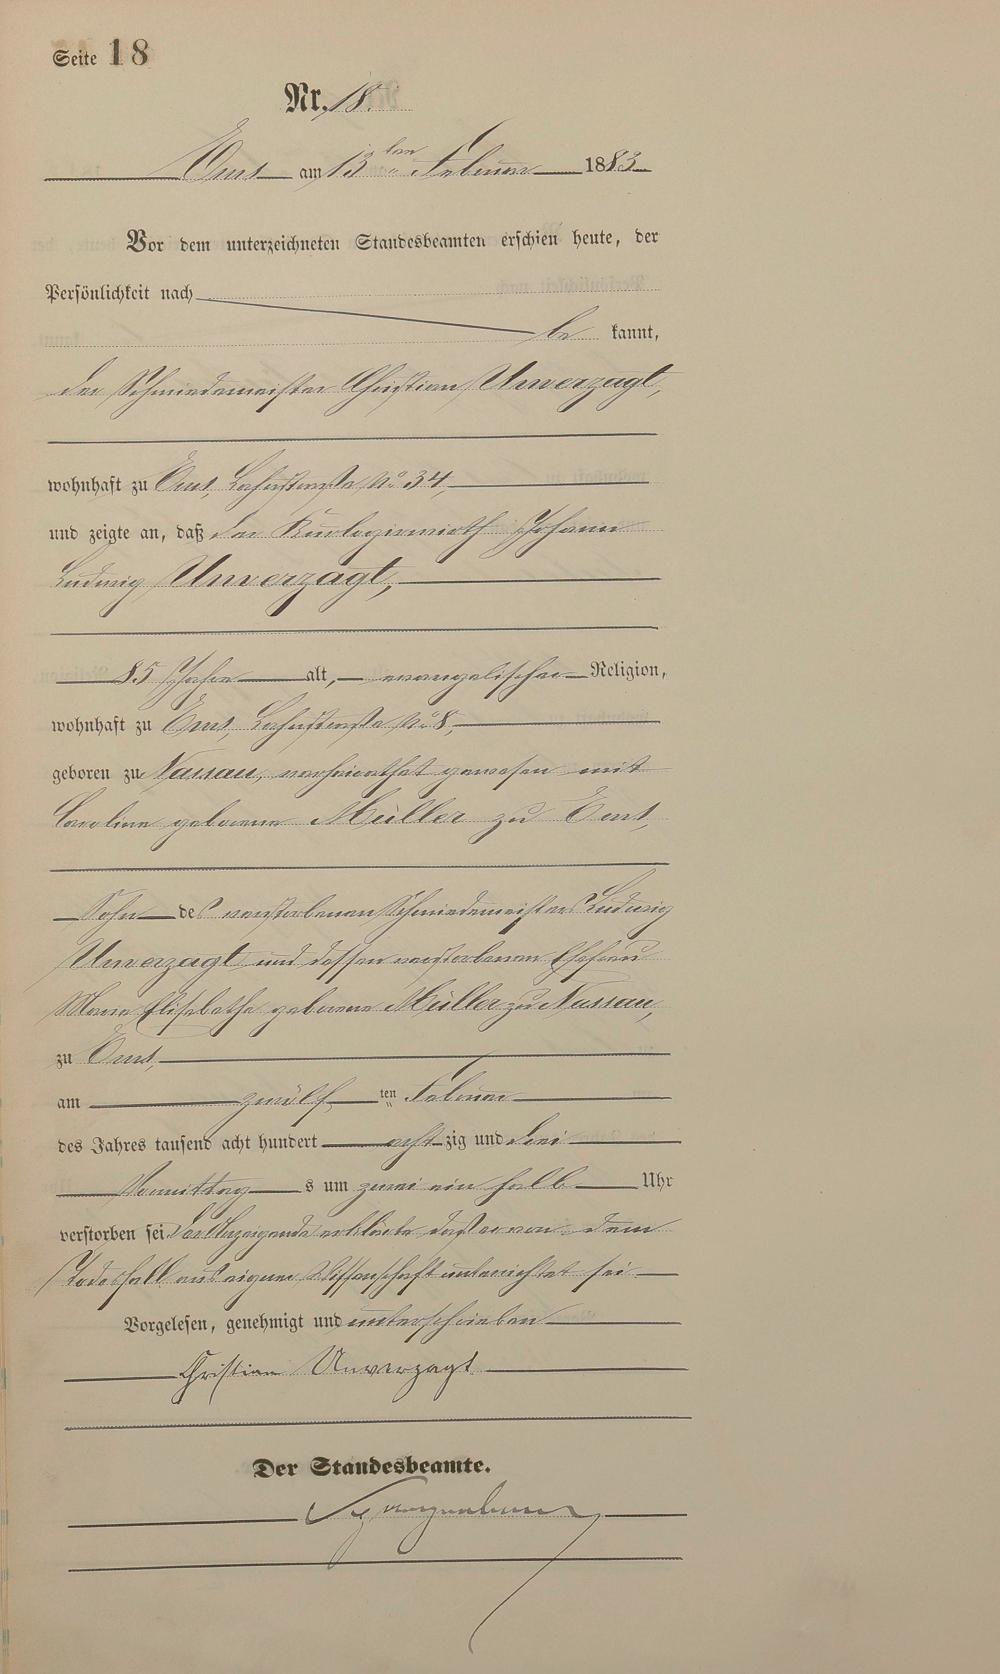 Seite 18
Nr. 18.
Ems am 13ten Februar 1883
Vor dem unterzeichneten Standesbeamten erschien heute, der
Persönlichkeit nach
be kannt,
der Schmiedemeister Christian Unverzagt,
wohnhaft zu Ems, Lahnstraße No 34,
und zeigte an, daß der Kurlogiewirth Johann
Ludwig Unverzagt,
85 Jahre alt, evangelischer Religion,
wohnhaft zu Ems, Lahnstraße No 8,
geboren zu Nassau, verheirathet gewesen mit
Caroline geborenen Müller zu Ems,
Sohn des verstorbenen Schmiedemeisters Ludwig
Unverzagt und dessen verstorbenen Ehefrau
Maria Elisabethe geborene Müller zu Nassau,
zu Ems,
am zwölf ten Februar
des Jahres tausend acht hundert acht zig und drei
Vormittag s um zwei ein halb Uhr
verstorben sei. Der Anzeigende erklärte, daß er von dem
Todesfall aus eigener Wissenschaft unterrichtet sei
Vorgelesen, genehmigt und unterschrieben
Christian Unverzagt
Der Standesbeamte.